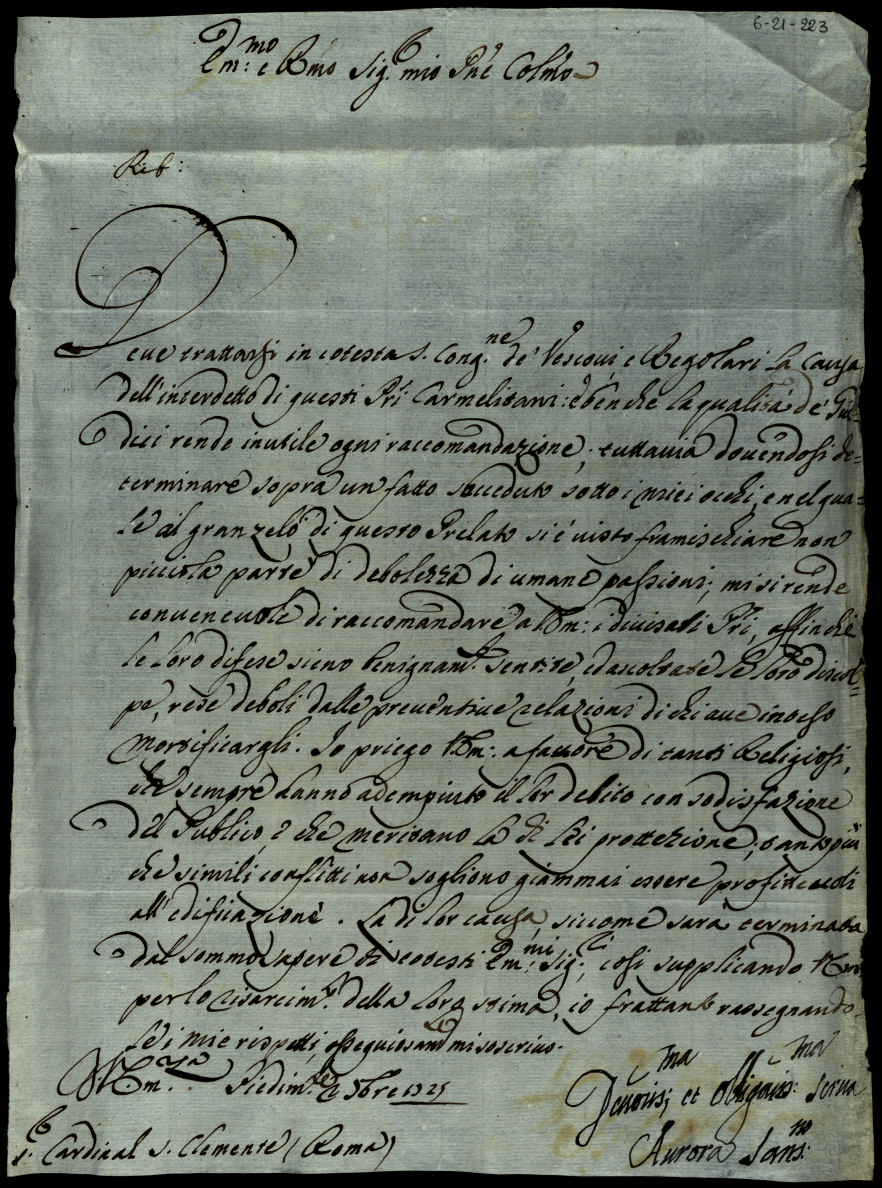 6-21-223
Em:mo e Rmo Sig.r mio Pne Colmo
Deve trattarsi in cotesta S. Cong.ne de' Vescovi, e Regolari la causa
dell'interdetto di questi Pri Carmelitani: e benche la qualità de' Giu-
dici rende inutile ogni raccomandazione, tuttavia dovendosi de=
terminare sopra un fatto succeduto sotto i miei occhi, e nel qua=
le al gran zelo di questo Prelato si è visto framischiare non
picciola parte di debolezza di umane passioni; mi si rende
convenevole di raccomandare a VEm: i divisati Pri, affinche
le loro difese sieno benignam.te sentite, ed ascoltate le loro discol=
pe, rese deboli dalle preventive relazioni di chi ave inteso
mortificargli. Io priego VEm: a favore di tanti Religiosi,
che sempre hanno adempiuto il lor debito con sodisfazione
del Publico, e che meritano la di lei protezione; tanto più
che simili conflitti non sogliono giammai essere profittevoli
all'edificazione. La di lor causa, siccome sarà terminata
dal sommo sapere di codesti Em:mi Sig.ri, così supplicando VEm
per lo risarcim.to della loro stima, io frattanto rassegnando=
le i miei rispetti, ossequiosam.te mi soscrivo.
VEm.za Piedim.te 2 9bre 1725
Devotis:ma et Obligatis:ma Serva
Aurora Sans:no
S.r Cardinal S. Clemente (Roma)